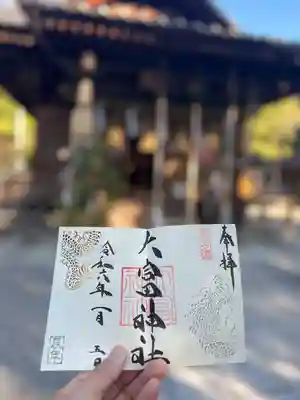 奉拝
大宮神社
令和六年一月五日